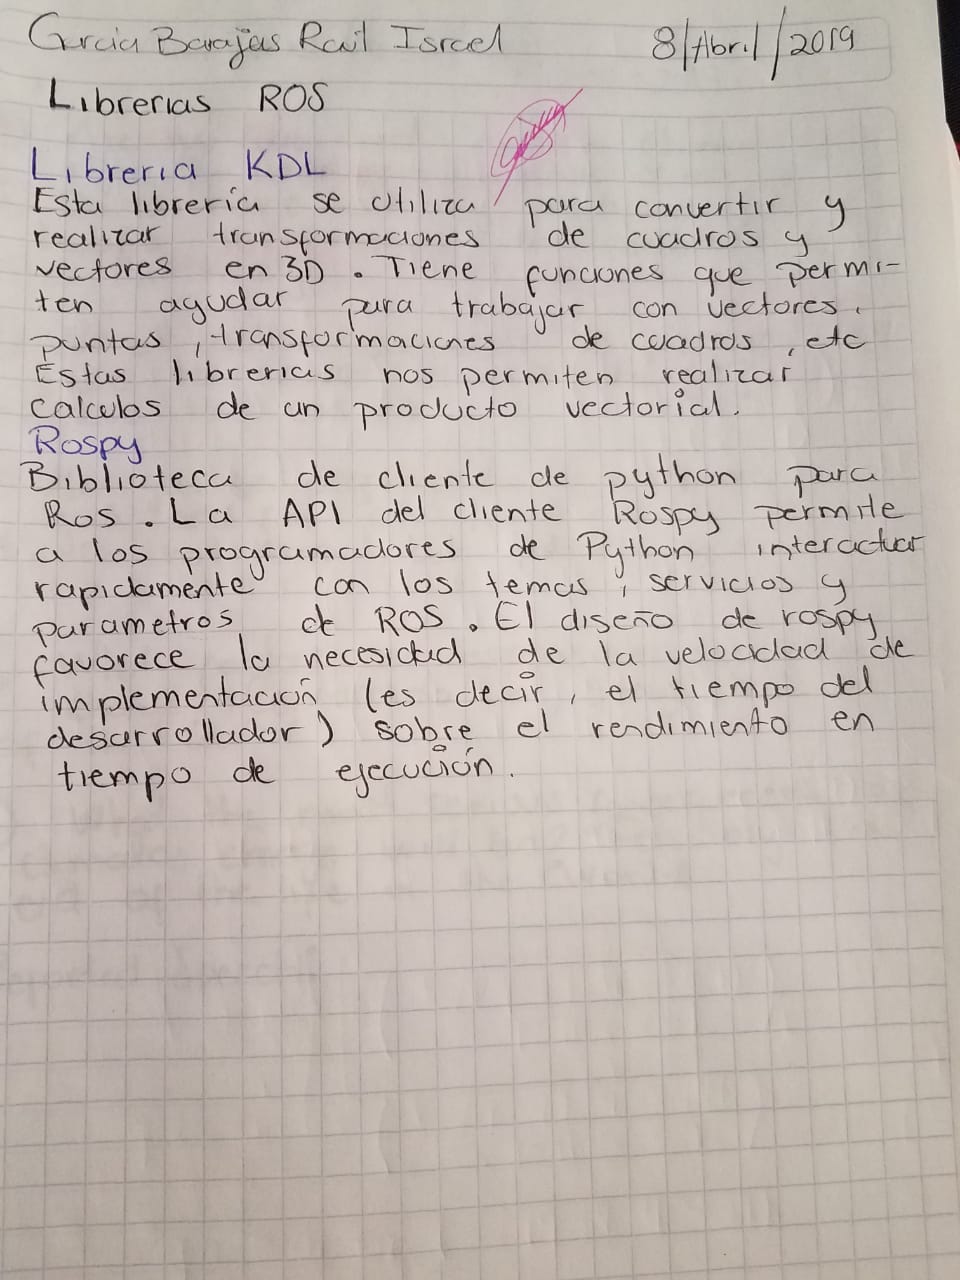 Garcia Barajas Raul Israel 8/Abril/2019
Librerias ROS
Libreria KDL
Esta librería se utiliza para convertir y
realizar transformaciones de cuadros y
vectores en 3D . Tiene funciones que permi-
ten ayudar para trabajar con vectores,
puntas , transformaciones de cuadros , etc
Estas librerias nos permiten realizar
calculos de un producto vectorial.
Rospy
Biblioteca de cliente de python para
Ros . La API del cliente Rospy permite
a los programadores de Python interactuar
rapidamente con los temas , servicios y
parametros de ROS . El diseño de rospy
favorece la necesidad de la velocidad de
implementación (es decir , el tiempo del
desarrollador) sobre el rendimiento en
tiempo de ejecución .